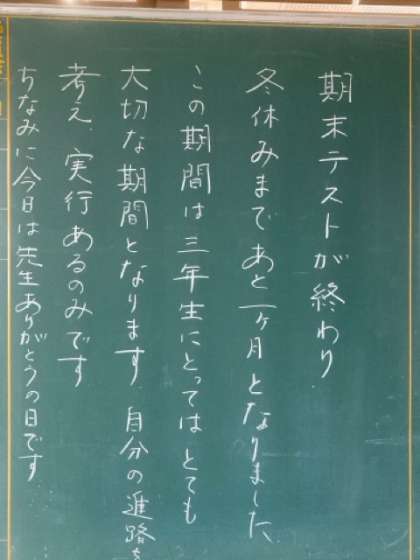 期末テストが終わり
冬休みまであと一ヶ月となりました
この期間は三年生にとってはとても
大切な期間となります 自分の進路を
考え、実行あるのみです
ちなみに今日は先生ありがとうの日です